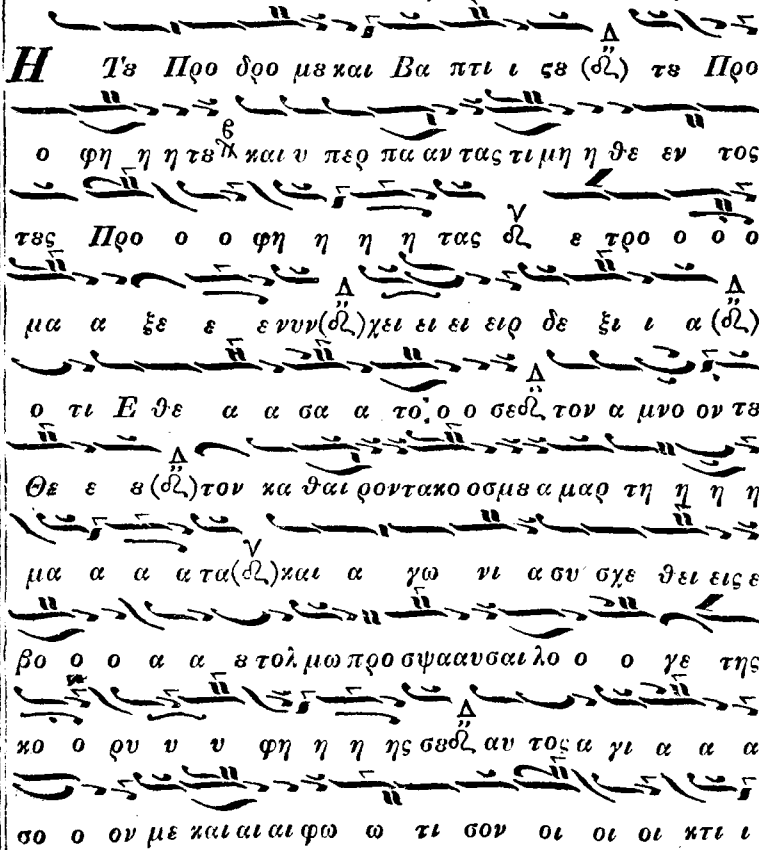 Η Τȣ Προ δρο μȣ και Βα πτι ι ςȣ τȣ Προ
ο φη η η τȣ και υ περ πα αν τας τι μη η θε εν τος
τȣς Προ ο ο φη η η η τας ε τρο ο ο ο
μα α ξε ε ε νυν χει ει ει ειρ δε ξι ι α
ο τι Ε θε α α σα α το ο ο σε τον α μνο ον τȣ
Θε ε ȣ τον κα θαι ρον τα κο οσμȣ α μαρ τη η η η
μα α α α τα και α γω νι α συ σχε θει εις ε
βο ο ο α α ȣ τολ μω προ σψα αυσαι λο ο ο γε της
κο ο ρυ υ υ φη η η ης σȣ αυ τος α γι α α α
σο ο ον με και αι αι φω ω τι σον οι οι οι κτι ι